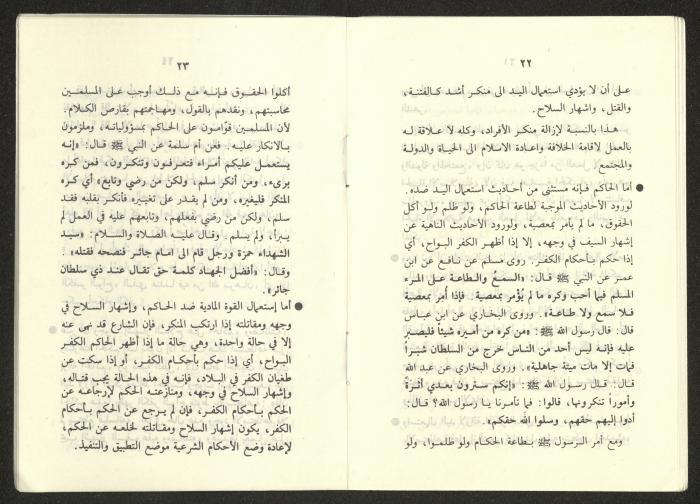 ٢٢
على أن لا يؤدي استعمال اليد الى منكر أشد كالفتنة،
والقتل، واشهار السلاح.
هذا بالنسبة لإزالة منكر الأفراد، وكله لا علاقة له
بالعمل لاقامة الخلافة واعادة الاسلام الى الحياة والدولة
والمجتمع.
● أما الحاكم فإنه مستثنى من أحاديث استعمال اليد ضده.
لورود الأحاديث الموجبة لطاعة الحاكم، ولو ظلم ولو أكل
الحقوق، ما لم يأمر بمعصية، ولورود الأحاديث الناهية عن
إشهار السيف في وجهه، إلا إذا ظهر الكفر البواح، أي
إذا حكم بأحكام الكفر. روى مسلم عن نافع عن ابن
عمر عن النبي ﷺ قال: «السمع والطاعة على المرء
المسلم فيما أحب وكره ما لم يُؤْمر بمعصية. فإذا أُمِر بمعصية
فلا سمع ولا طاعة». وروى البخاري عن ابن عباس
قال: قال رسول الله ﷺ: «من كره من أميره شيئاً فليصبر
عليه فإنه ليس أحد من الناس خرج من السلطان شبراً
فمات إلا مات ميتة جاهلية». وروى البخاري عن عبد الله
قال: قال رسول الله ﷺ: «إنكم سترون بعدي أثرة
وأموراً تنكرونها، قالوا: فما تأمرنا يا رسول الله؟ قال:
أدوا إليهم حقهم، وسلوا الله حقكم».
ومع أمر الرسول ﷺ بطاعة الحكام ولو ظلموا، ولو
٢٣
أكلوا الحقوق فإنه مع ذلك أوجب على المسلمين
محاسبتهم، ونقدهم بالقول، ومهاجمتهم بقارص الكلام.
لأن المسلمين قوّامون على الحاكم بمسؤولياته، وملزمون
بالانكار عليه. فعن أم سلمة عن النبي ﷺ قال: «إنه
يستعمل عليكم أمراء فتعرفون وتنكرون، فمن كره
برىء، ومن أنكر سلم، ولكن من رضي وتابع» أي كره
المنكر فليغيره، ومن لم يقدر على تغييره فأنكر بقلبه فقد
سلم، ولكن من رضي بفعلهم، وتابعهم عليه في العمل لم
يبرأ، ولم يسلم. وقال عليه الصلاة والسلام: «سيد
الشهداء حمزة ورجل قام الى امام جائر فنصحه فقتله».
وقال: «أفضل الجهاد كلمة حق تقال عند ذي سلطان
جائر».
● أما إستعمال القوة المادية ضد الحاكم، وإشهار السلاح في
وجهه ومقاتلته إذا ارتكب المنكر، فإن الشارع قد نهى عنه
إلا في حالة واحدة، وهي حالة ما إذا أظهر الحاكم الكفر
البواح، أي إذا حكم بأحكام الكفر، أو إذا سكت عن
طغيان الكفر في البلاد، فإنه في هذه الحالة يجب قتاله،
وإشهار السلاح في وجهه، ومنازعته الحكم لإرجاعه عن
الحكم بأحكام الكفر، فإن لم يرجع عن الحكم بأحكام
الكفر، يكون إشهار السلاح ومقاتلته لخلعه عن الحكم،
لإعادة وضع الأحكام الشرعية موضع التطبيق والتنفيذ.